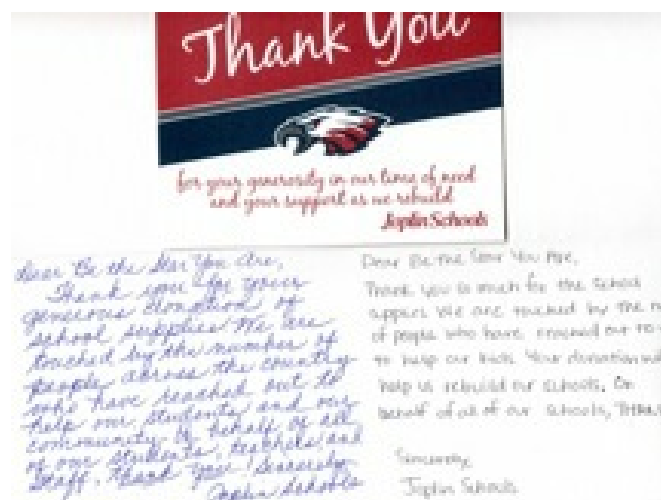 Thank You
for your generosity in our time of need
and your support as we rebuild
Joplin Schools
Dear Be the Star You Are,
Thank you for your
generous donation of
school supplies. We are
touched by the number of
people across the country
who have reached out to
help our students and our
community. On behalf of all
of our students, teachers, and
staff, thank you! Sincerely,
Joplin Schools
Dear Be the Star You Are,
Thank you so much for the school
We are touched by the
of people who have reached out to
to help our kids. Your donation will
help us rebuild our schools. On
behalf of all of our schools,
Sincerely,
Joplin Schools